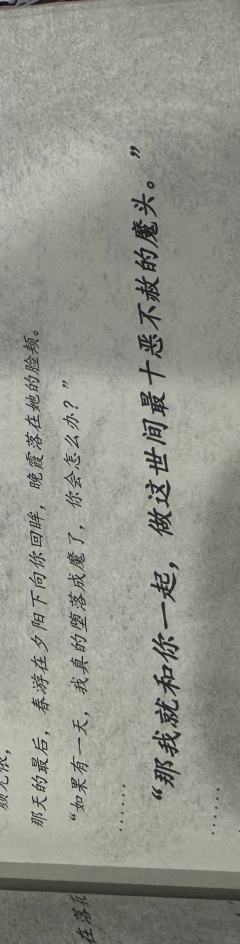 那天的最后，春游在夕阳下向你回眸，晚霞落在她的脸颊。
“如果有一天，我真的堕落成魔了，你会怎么办？”
……
“那我就和你一起，做这世间最十恶不赦的魔头。”
……